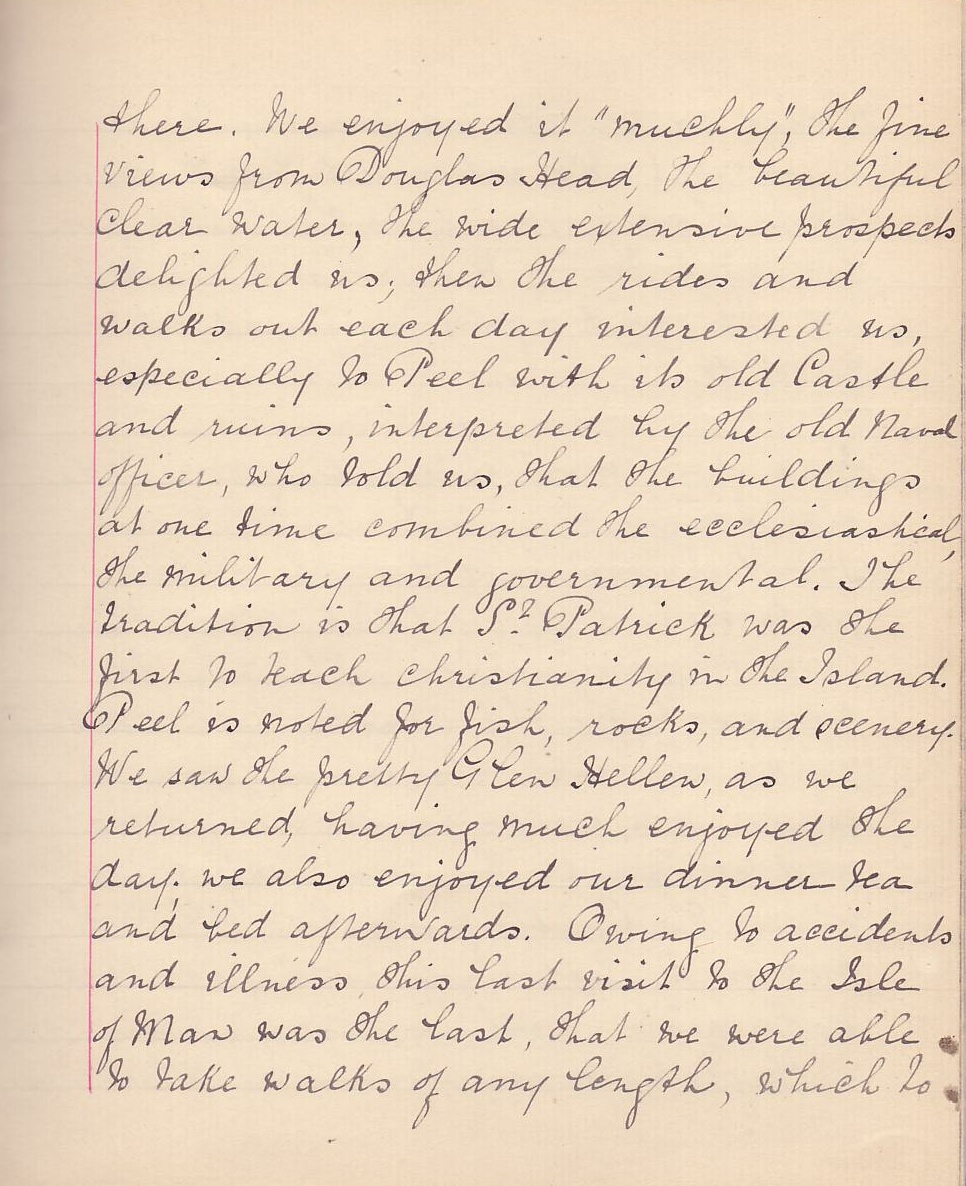 there. We enjoyed it "muchly", the fine
views from Douglas Head, the beautiful
clear water, the wide extensive prospects
delighted us; then the rides and
walks out each day interested us,
especially to Peel with its old Castle
and ruins, interpreted by the old Naval
officer, who told us, that the buildings
at one time combined the ecclesiastical,
the military and governmental. The
tradition is that St. Patrick was the
first to teach christianity in the Island.
Peel is noted for fish, rocks, and scenery.
We saw the pretty Glen Hellen, as we
returned, having much enjoyed the
day; we also enjoyed our dinner tea
and bed afterwards. Owing to accidents
and illness, this last visit to the Isle
of Man was the last, that we were able
to take walks of any length, which to